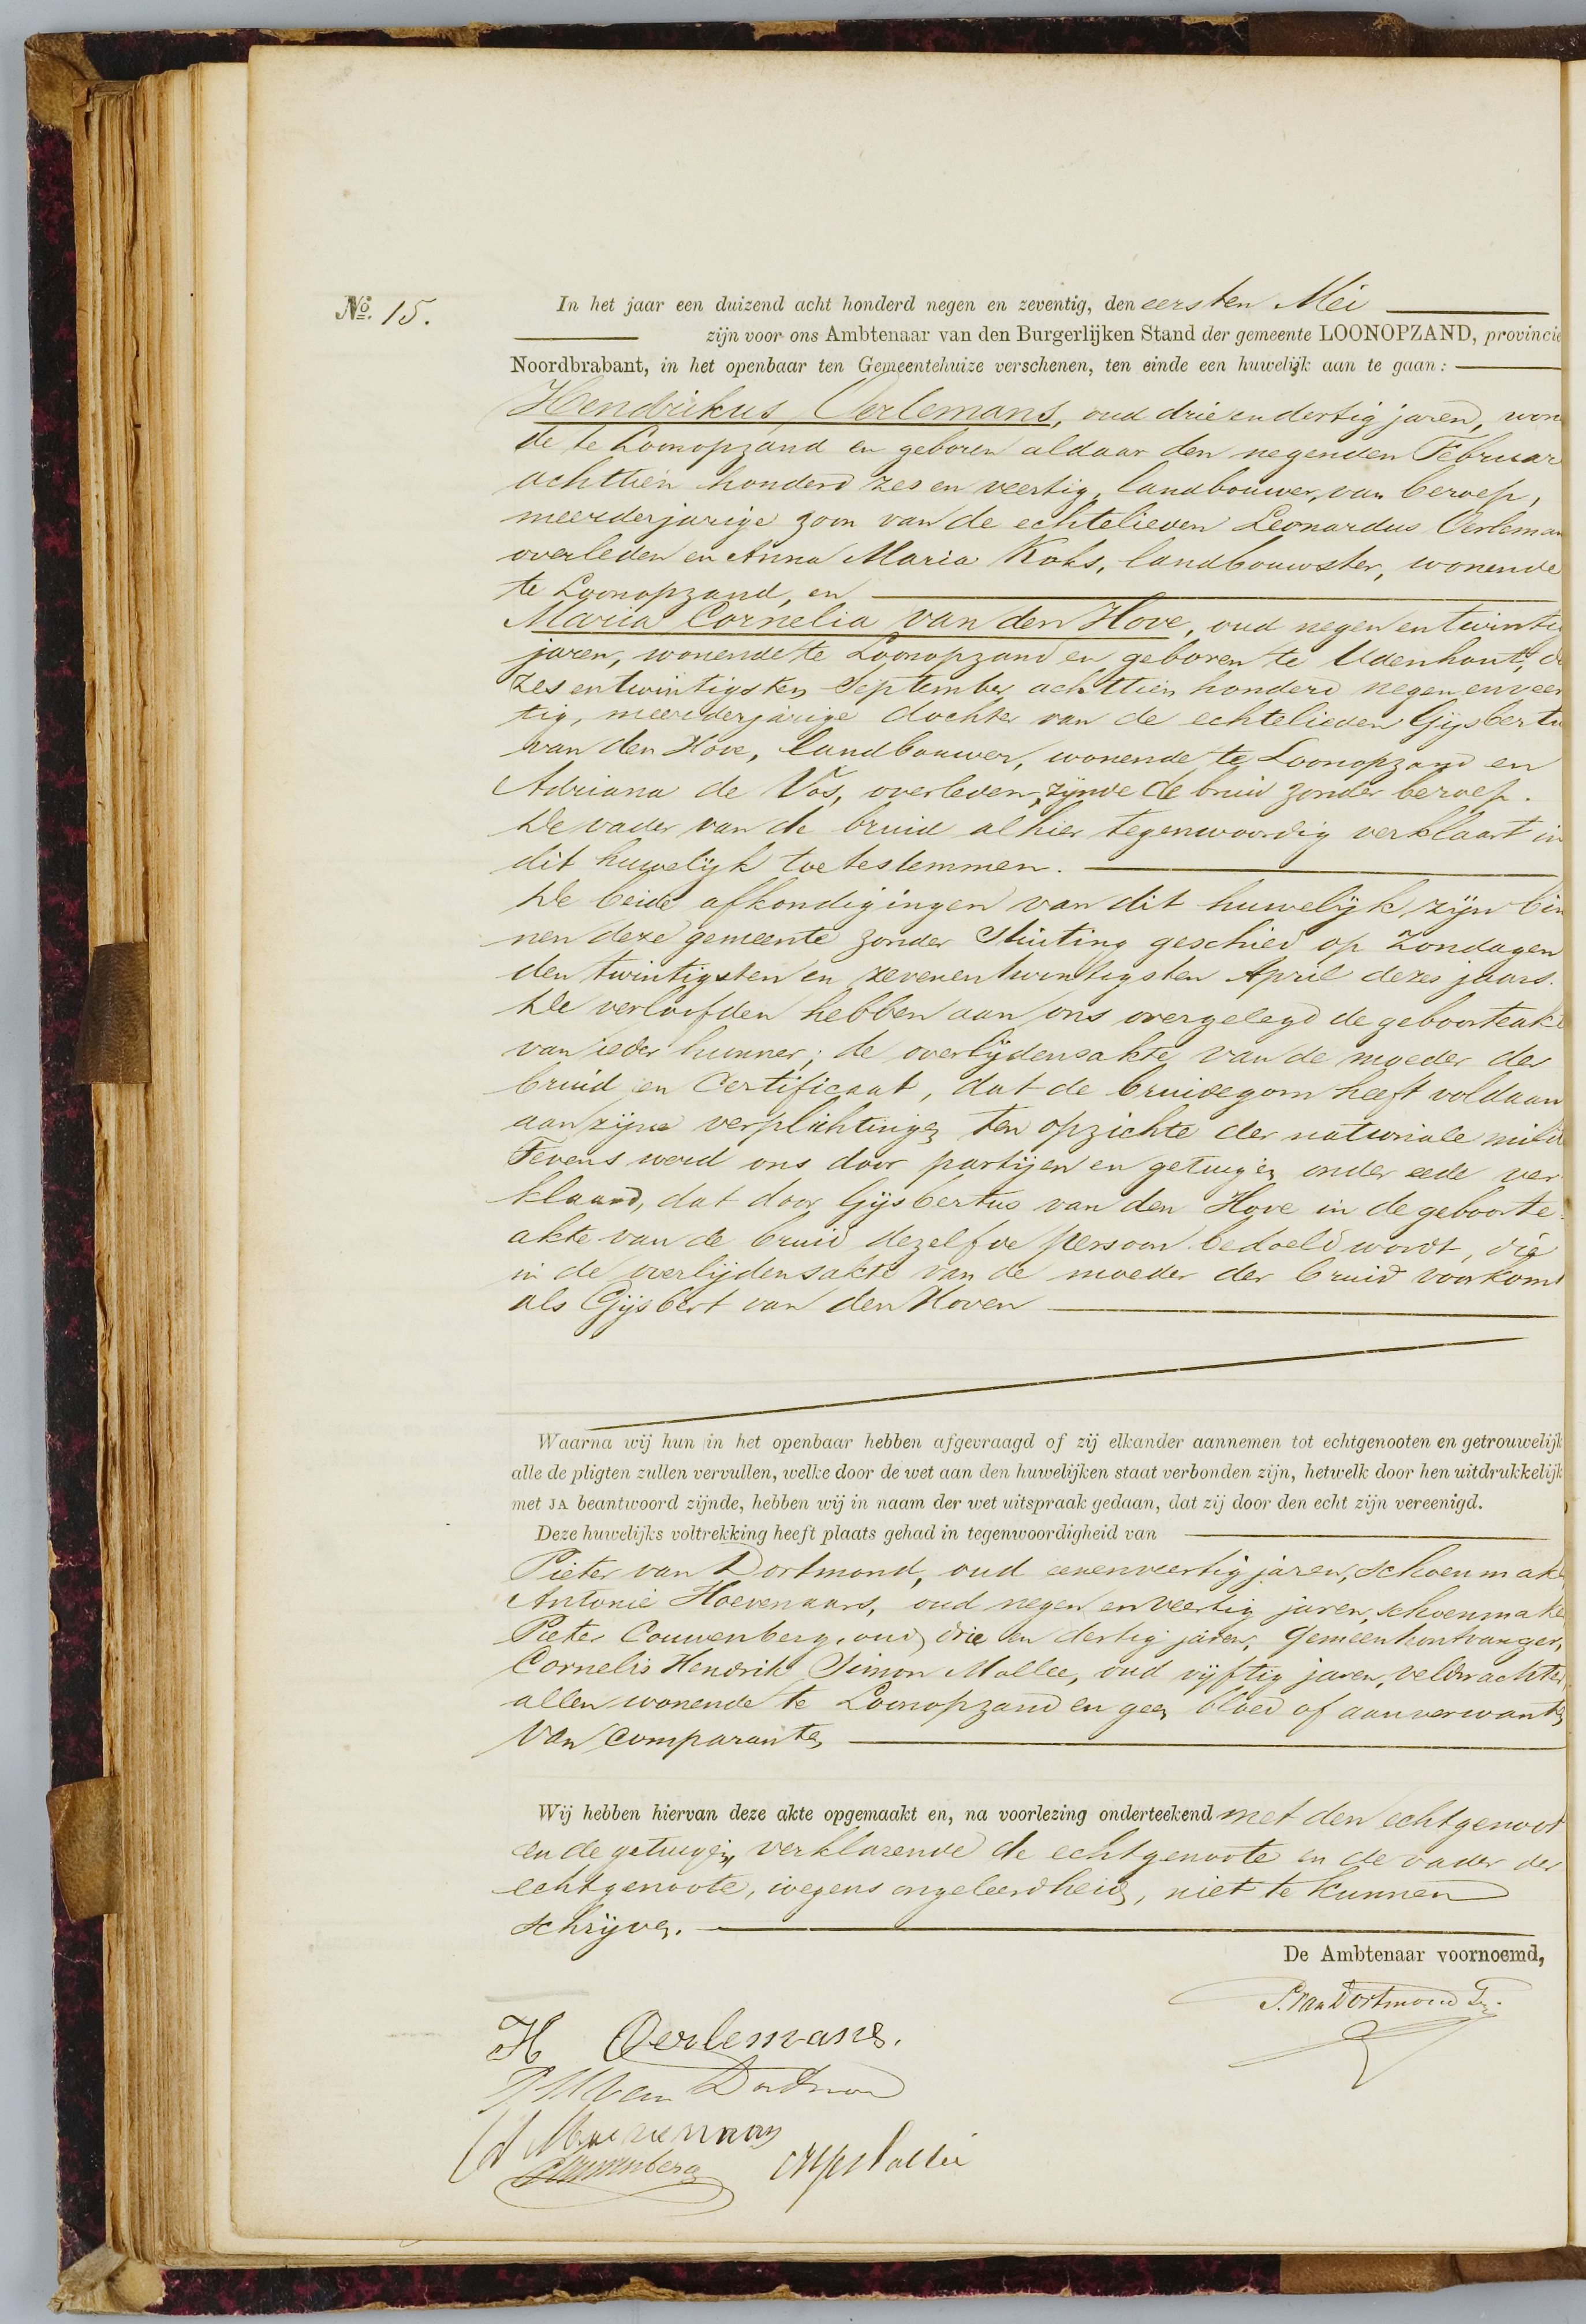 No. 15.
In het jaar een duizend acht honderd negen en zeventig, den eersten Mei
zijn voor ons Ambtenaar van den Burgerlijken Stand der gemeente LOONOPZAND, provincie
Noordbrabant, in het openbaar ten Gemeentehuize verschenen, ten einde een huwelijk aan te gaan:
Hendrikus Oerlemans, oud drie en dertig jaren, won
de te Loonopzand en geboren aldaar den negenden Februar
achttien honderd zes en veertig, landbouwer, van beroep,
meerderjarige zoon van de echtelieden Leonardus Oerleman
overleden en Anna Maria Koks, landbouwster, wonende
te Loonopzand, en
Maria Cornelia van den Hove, oud negen en twintig
jaren, wonende te Loonopzand en geboren te Udenhout, d
zes en twintigsten September achttien honderd negen en veer
tig, meerderjarige dochter van de echtelieden Gijsbertu
van den Hove, landbouwer, wonende te Loonopzand en
Adriana de Vos, overleden, zijnde de bruid zonder beroep.
De vader van de bruid alhier tegenwoordig verklaart in
dit huwelijk toetestemmen.
De beide afkondigingen van dit huwelijk zijn bin
nen deze gemeente zonder stuiting geschied op Zondagen
den twintigsten en zevenentwintigsten April dezes jaars.
De verloofden hebben aan ons overgelegd de geboorteakt
van ieder hunner; de overlijdensakte van de moeder der
bruid en Certificaat, dat de bruidegom heeft voldaan
aan zijne verplichtingen ten opzichte der nationale milit
Tevens werd ons door partijen en getuigen onder eede ver
klaard, dat door Gijsbertus van den Hove in de geboorte
akte van de bruid dezelfde persoon bedoeld wordt, die
in de overlijdensakte van de moeder der bruid voorkomt
als Gijsbert van den Hoven
Waarna wij hun in het openbaar hebben afgevraagd of zij elkander aannemen tot echtgenooten en getrouwelijk
alle de pligten zullen vervullen, welke door de wet aan den huwelijken staat verbonden zijn, hetwelk door hen uitdrukkelijk
met JA beantwoord zijnde, hebben wij in naam der wet uitspraak gedaan, dat zij door den echt zijn vereenigd.
Deze huwelijks voltrekking heeft plaats gehad in tegenwoordigheid van
Pieter van Dortmond, oud eenenveertig jaren, schoenmake
Antonie Hoevenaars, oud negen en veertig jaren, schoenmake
Pieter Couwenberg, oud drie en dertig jaren, Gemeentontvanger,
Cornelis Hendrik Simon Mallee, oud vijftig jaren, veldwachter
allen wonende te Loonopzand en geen bloed of aanverwanten
van comparanten
Wij hebben hiervan deze akte opgemaakt en, na voorlezing onderteekend met den echtgenoot
en de getuigen, verklarende de echtgenoote en de vader der
echtgenoote, wegens ongeleerdheid, niet te kunnen
schrijven.
De Ambtenaar voornoemd,
P. van Dortmond
H Oerlemans.
van Dortmond
A Hoevenaars
Couwenberg
CHS Mallée